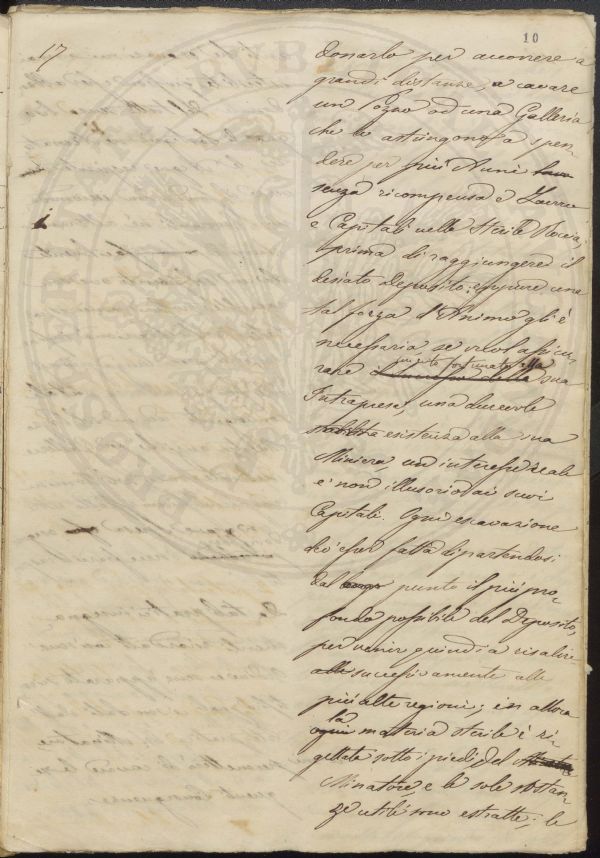 10
17
donarlo per accorrere a
grandi distanze, a cavare
un Pozzo od una Galleria,
che lo astringono a spen-
dere per più Anni
senza ricompensa e Lavoro
e Capitali nelle Sterili Roccia,
prima di raggiungere il
desiato Deposito; eppure una
tal forza d'Animo gli è
necessaria se vuol assicu-
rare niente fortunato alla sua
Intrapresa, una durevole
stabilita esistenza alla sua
Miniera, un interesse reale
e non illusorio ai suoi
Capitali. Ogni escavazione
dev'esser fatta dipartendosi
dal punto il più pro-
fondo possibile del Deposito,
per venir quindi a risalire
alle successivamente alle
più alte regioni; in allora
ogni la materia sterile è ri-
gettata sotto i piedi del
Minatore, e le sole sostan-
ze utili sono estratte; le